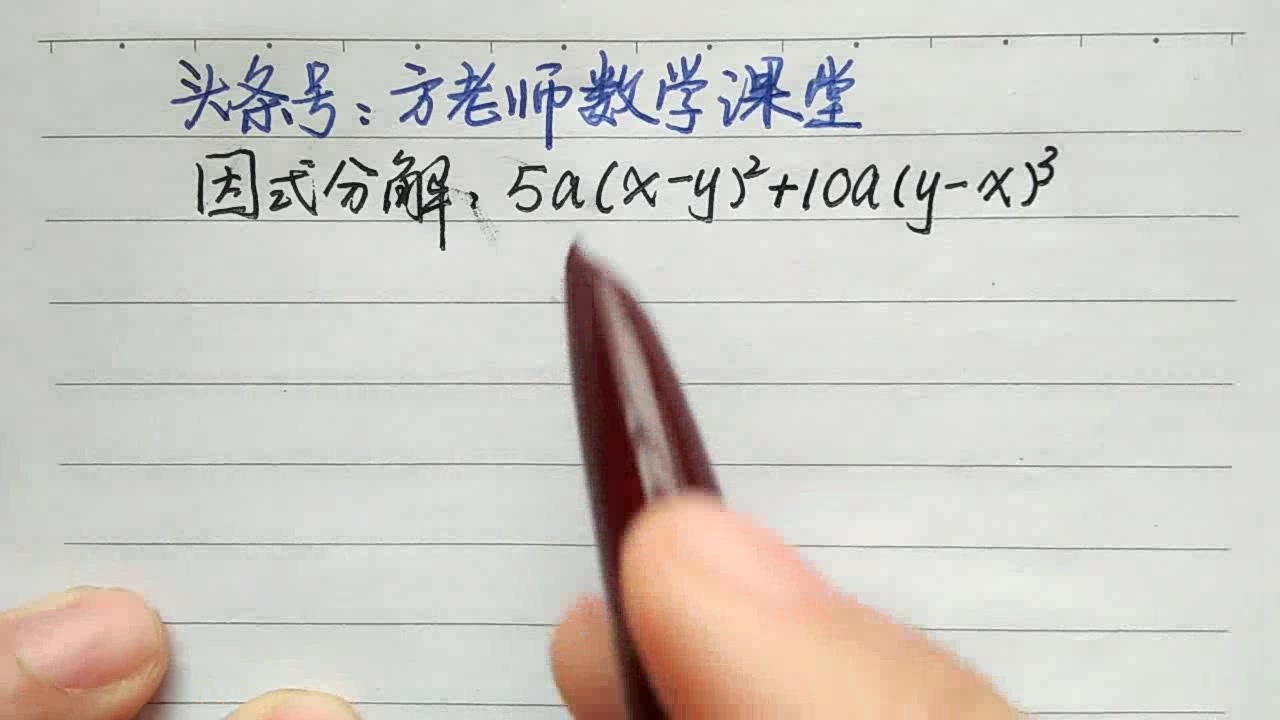 头条号:方老师数学课堂
因式分解:5a(x-y)²+10a(y-x)³